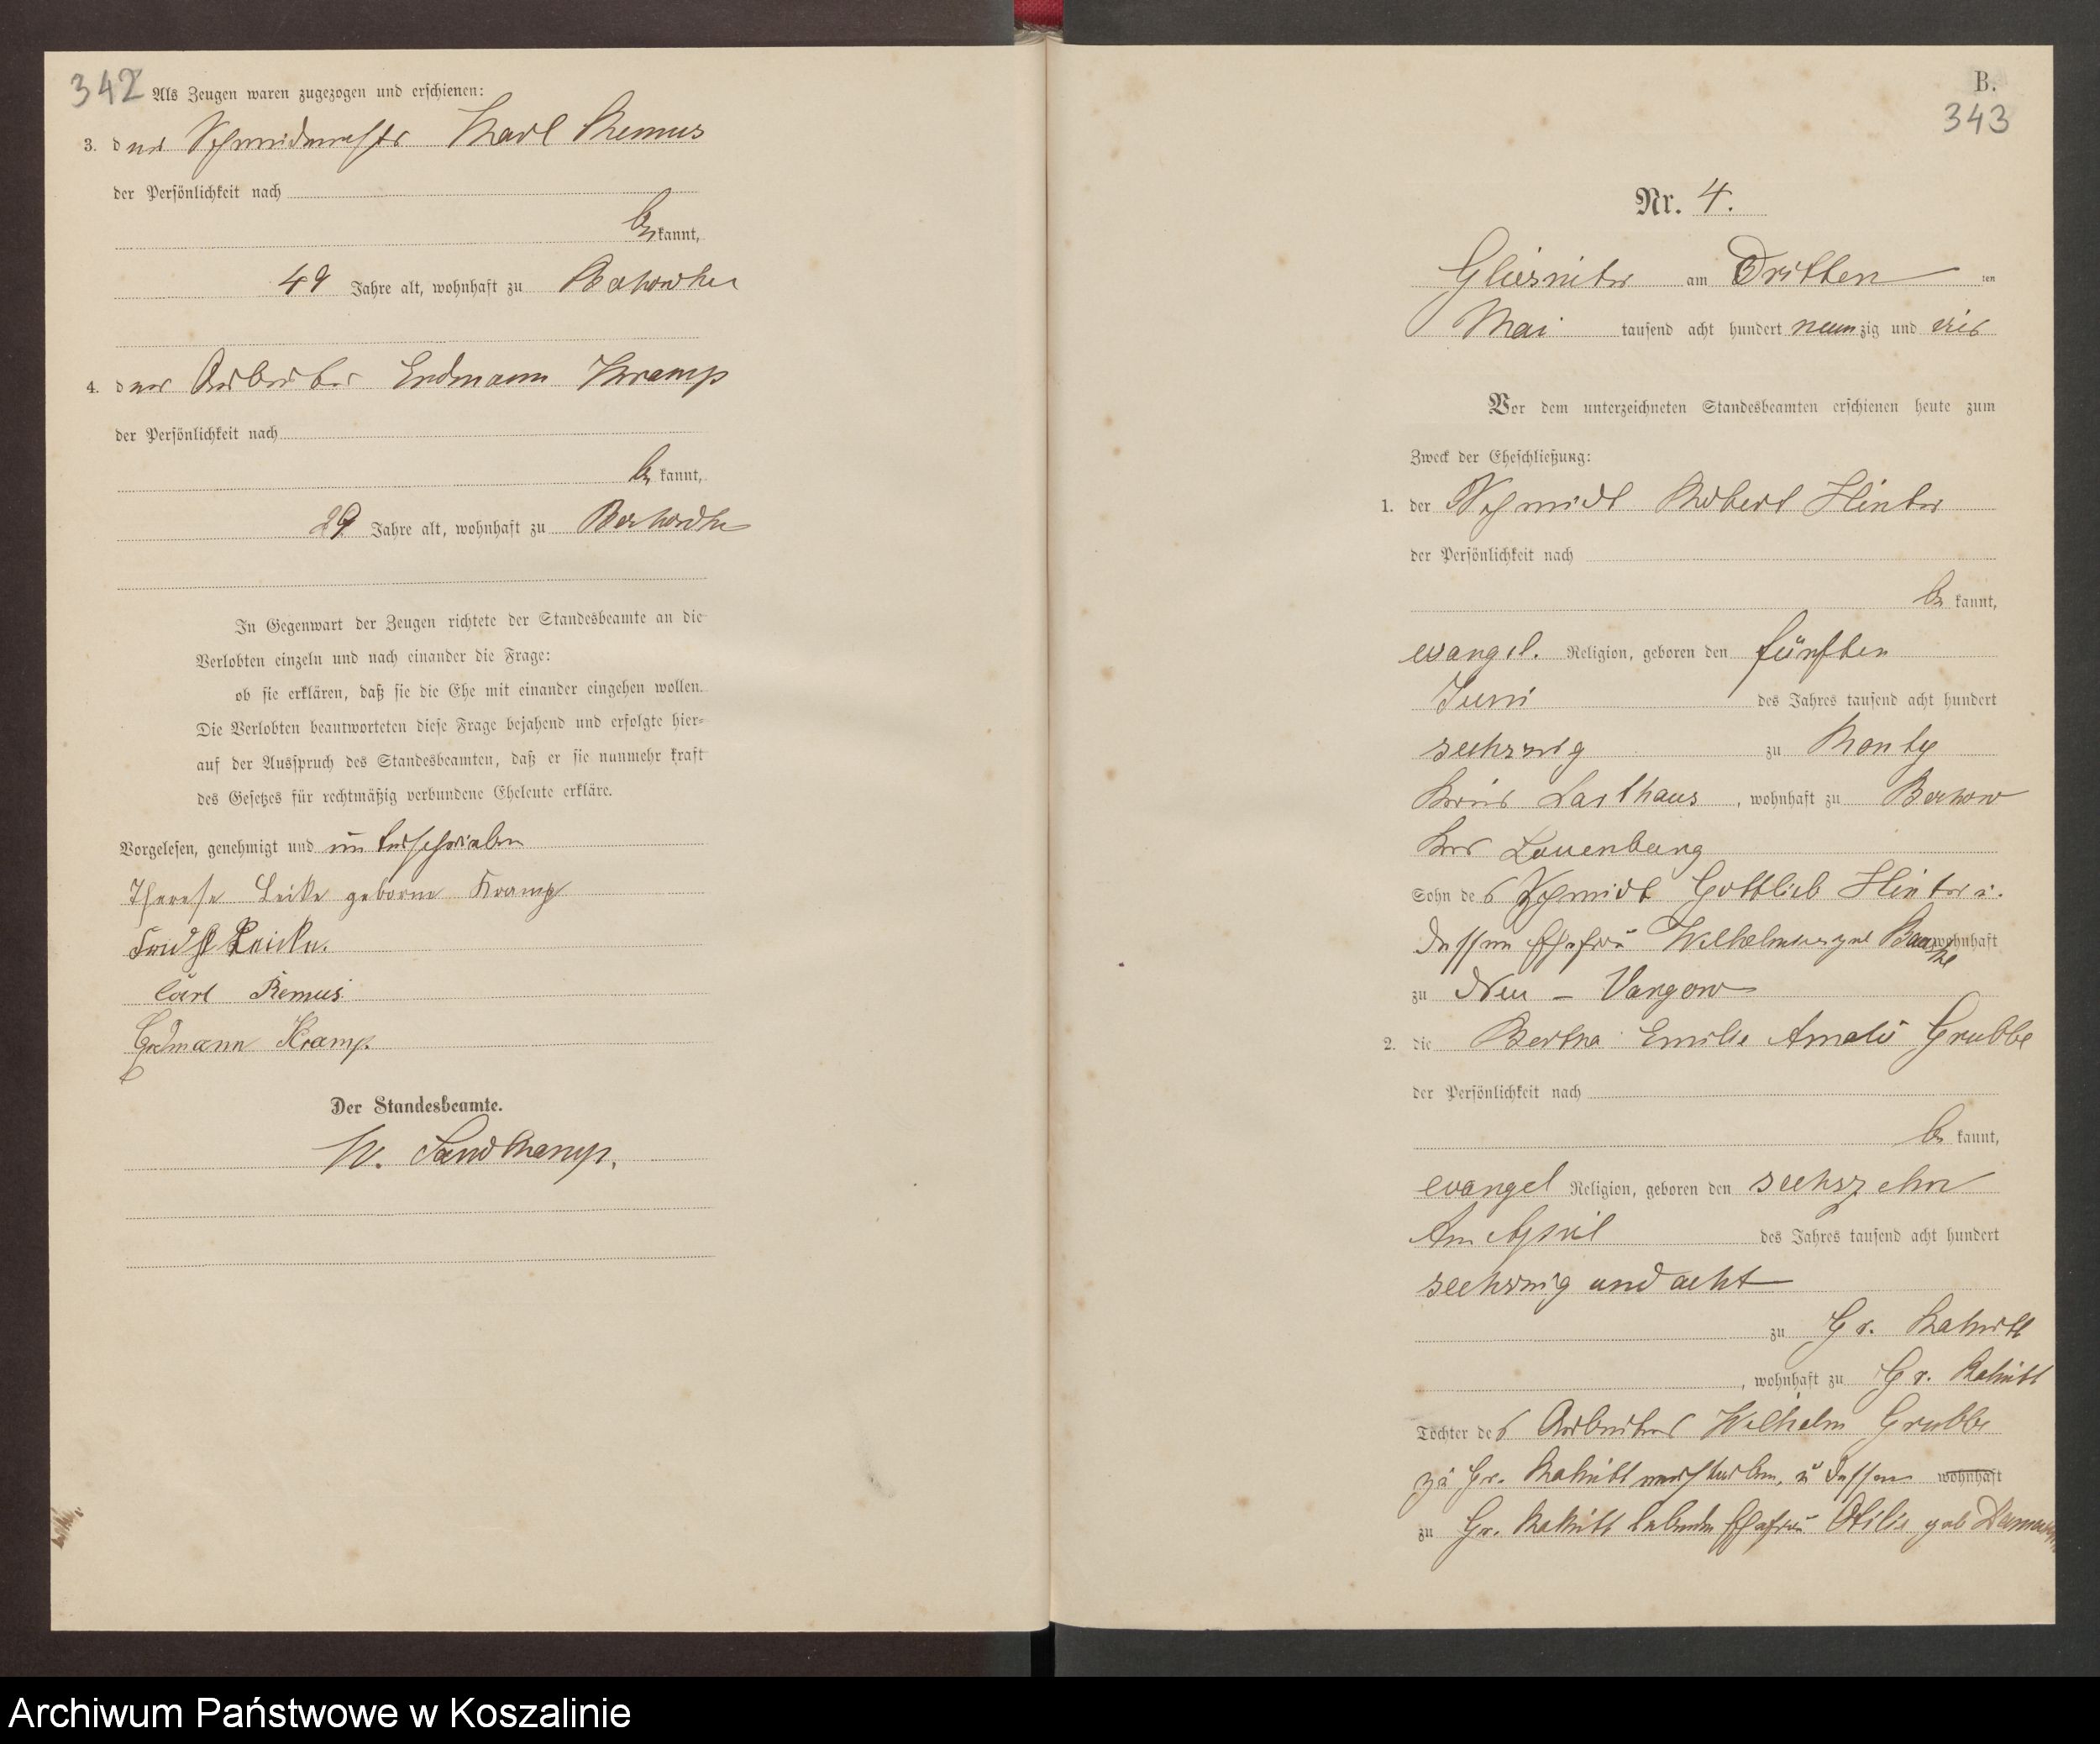 342 Als Zeugen waren zugezogen und erschienen:
3. der Schmidmstr Karl Remus
der Persönlichkeit nach
be kannt,
49 Jahre alt, wohnhaft zu
4. der Arbeiter Erdmann Kramp
der Persönlichkeit nach
be kannt,
29 Jahre alt, wohnhaft zu
In Gegenwart der Zeugen richtete der Standesbeamte an die
Verlobten einzeln und nach einander die Frage:
ob sie erklären, daß sie die Ehe mit einander eingehen wollen.
Die Verlobten beantworteten diese Frage bejahend und erfolgte hier-
auf der Ausspruch des Standesbeamten, daß er sie nunmehr kraft
des Gesetzes für rechtmäßig verbundene Eheleute erkläre.
Vorgelesen, genehmigt und unterschrieben
Therese Leike geborne Kramp
Leike.
Carl Remus
Erdmann Kramp
Der Standesbeamte.
W. Sandkamp.
B.
343
Nr. 4.
Gliesnitz am Dritten ten
Mai tausend acht hundert neunzig und vier
Vor dem unterzeichneten Standesbeamten erschienen heute zum
Zweck der Eheschließung:
1. der Schmidt Robert Hintz
der Persönlichkeit nach
be kannt,
evangel. Religion, geboren den fünften
Juni des Jahres tausend acht hundert
sechszig zu
Kreis Carthaus, wohnhaft zu
Krs Lauenburg
Sohn des Schmidt Gottlieb Hintz u.
dessen Ehefrau Wilhelmine geb wohnhaft
zu Neu - Vargow
2. die Bertha Emilie Amalie Grubbe
der Persönlichkeit nach
be kannt,
evangel Religion, geboren den sechszehn
ten April des Jahres tausend acht hundert
sechszig und acht
zu Gr. Rakitt
, wohnhaft zu Gr. Rakitt
Tochter des Arbeiters Wilhelm Grubbe
zu Gr. Rakitt verstorben, u dessen wohnhaft
zu Gr. Rakitt lebende Ehefrau Otilie geb
Archiwum Państwowe w Koszalinie